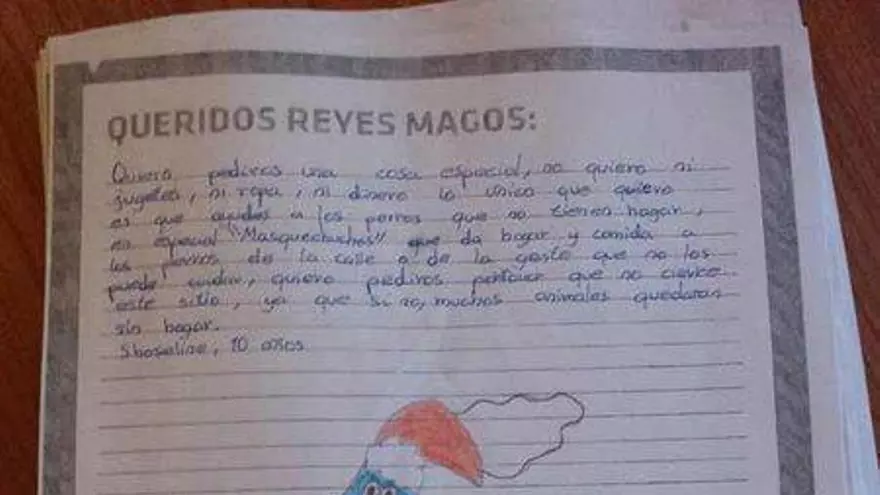 QUERIDOS REYES MAGOS:
Quiero pediros una cosa espacial, no quiero ni
jugetes, ni ropa, ni dinero lo unico que quiero
es que ayudes a los perros que no tienen hogar,
en especial "Masquechuchos" que da hogar y comida a
los perros de la calle o de la gaste que no los
puede cuidar, quiero pediros portavor que no cierre
este sitio, ya que si no, muchos animales quedaran
sin hogar.
10 años